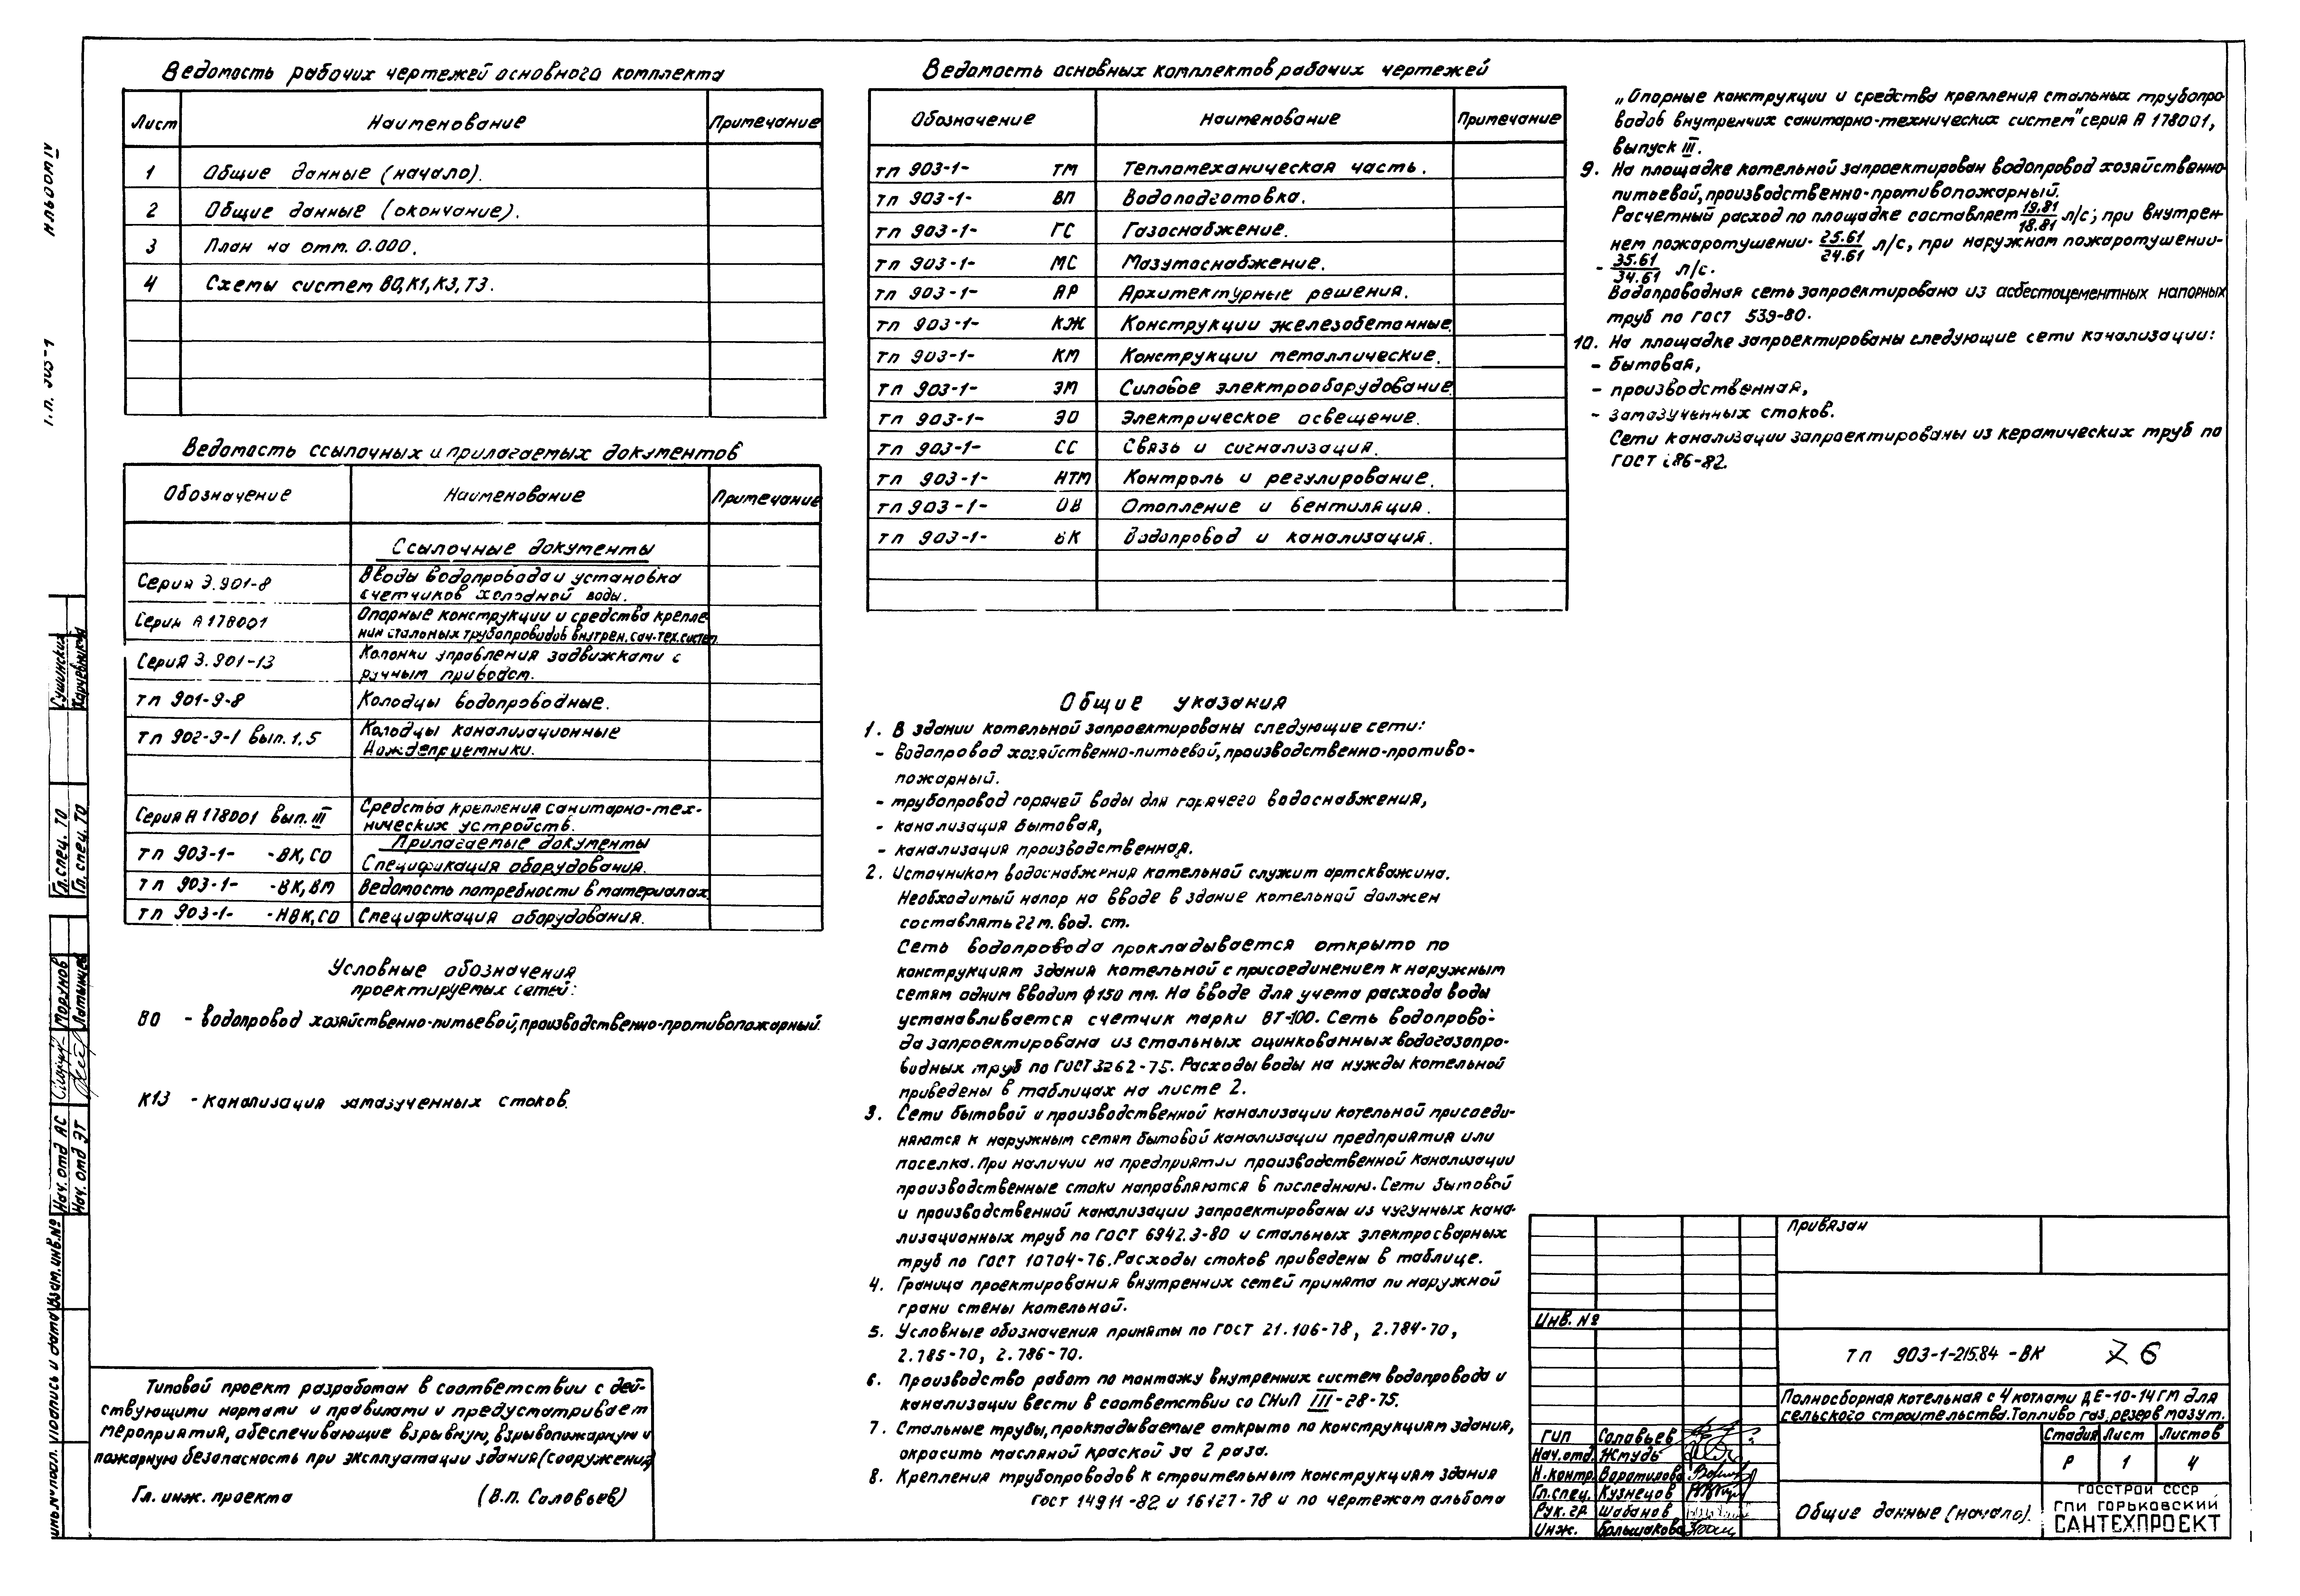 Альбом IV
т.п. 903-1
Ведомость рабочих чертежей основного комплекта
Лист Наименование Примечание
1 Общие данные (начало).
2 Общие данные (окончание).
3 План на отм. 0.000.
4 Схемы систем В0, К1, К3, Т3.
Ведомость ссылочных и прилагаемых документов
Обозначение Наименование Примечание
Ссылочные документы
Серия 3.901-8 Вводы водопровода и установка
счетчиков холодной воды.
Серия А178001 Опорные конструкции и средства крепле
ния стальных трубопроводов внутрен. сан.-тех. систем.
Серия 3.901-13 Колонки управления задвижками с
ручным приводом.
тп 901-9-8 Колодцы водопроводные.
тп 902-9-1 вып. 1,5 Колодцы канализационные
Дождеприемники.
Серия А 178001 вып. III Средства крепления санитарно-тех-
нических устройств.
Прилагаемые документы
тп 903-1- -ВК,СО Спецификация оборудования.
тп 903-1- -ВК,ВМ Ведомость потребности в материалах.
тп 903-1- -НВК,СО Спецификация оборудования.
Условные обозначения
проектируемых сетей:
В0 - водопровод хозяйственно-питьевой, производственно-противопожарный.
К13 - канализация замазученных стоков.
Типовой проект разработан в соответствии с дей-
ствующими нормами и правилами и предусматривает
мероприятия, обеспечивающие взрывную, взрывопожарную и
пожарную безопасность при эксплуатации здания (сооружения)
Гл. инж. проекта (В.П. Соловьев)
Ведомость основных комплектов рабочих чертежей
Обозначение Наименование Примечание
тп 903-1- ТМ Тепломеханическая часть.
тп 903-1- ВП Водоподготовка.
тп 903-1- ГС Газоснабжение.
тп 903-1- МС Мазутоснабжение.
тп 903-1- АР Архитектурные решения.
тп 903-1- КЖ Конструкции железобетонные.
тп 903-1- КМ Конструкции металлические.
тп 903-1- ЭМ Силовое электрооборудование
тп 903-1- ЭО Электрическое освещение.
тп 903-1- СС Связь и сигнализация.
тп 903-1- НТМ Контроль и регулирование.
тп 903-1- ОВ Отопление и вентиляция.
тп 903-1- ВК Водопровод и канализация.
Общие указания
1. В здании котельной запроектированы следующие сети:
- водопровод хозяйственно-питьевой, производственно-противо-
пожарный.
- трубопровод горячей воды для горячего водоснабжения,
- канализация бытовая,
- канализация производственная.
2. Источником водоснабжения котельной служит артскважина.
Необходимый напор на вводе в здание котельной должен
составлять 22 м. вод. ст.
Сеть водопровода прокладывается открыто по
конструкциям здания котельной с присоединением к наружным
сетям одним вводом ф150 мм. На вводе для учета расхода воды
устанавливается счетчик марки ВТ-100. Сеть водопрово-
да запроектирована из стальных оцинкованных водогазопро-
водных труб по ГОСТ 3262-75. Расходы воды на нужды котельной
приведены в таблицах на листе 2.
3. Сети бытовой и производственной канализации котельной присоеди-
няются к наружным сетям бытовой канализации предприятия или
поселка. При наличии на предприятии производственной канализации
производственные стоки направляются в последнюю. Сети бытовой
и производственной канализации запроектированы из чугунных кана-
лизационных труб по ГОСТ 6942.3-80 и стальных электросварных
труб по ГОСТ 10704-76. Расходы стоков приведены в таблице.
4. Граница проектирования внутренних сетей принята по наружной
грани стены котельной.
5. Условные обозначения приняты по ГОСТ 21.106-78, 2.784-70,
2.785-70, 2.786-70.
6. Производство работ по монтажу внутренних систем водопровода и
канализации вести в соответствии со СНиП III-28-75.
7. Стальные трубы, прокладываемые открыто по конструкциям здания,
окрасить масляной краской за 2 раза.
8. Крепления трубопроводов к строительным конструкциям здания
ГОСТ 14911-82 и 16127-78 и по чертежам альбома
„Опорные конструкции и средства крепления стальных трубопро
водов внутренних санитарно-технических систем" серия А 178001,
выпуск III.
9. На площадке котельной запроектирован водопровод хозяйственно-
питьевой, производственно-противопожарный.
Расчетный расход по площадке составляет 19.81/18.81 л/с; при внутрен-
нем пожаротушении- 25.61/24.61 л/с, при наружном пожаротушении-
- 35.61/34.61 л/с.
Водопроводная сеть запроектирована из асбестоцементных напорных
труб по ГОСТ 539-80.
10. На площадке запроектированы следующие сети канализации:
- бытовая,
- производственная,
- замазученных стоков.
Сети канализации запроектированы из керамических труб по
ГОСТ 286-82.
Привязан
Инв. №
тп 903-1-215.84 -ВК 26
Полносборная котельная с 4 котлами ДЕ-10-14ГМ для
сельского строительства. Топливо газ, резерв мазут.
Стадия Лист Листов
Р 1 4
ГИП Соловьев
Нач.отд. Жмудь
Н.контр.
Гл.спец. Кузнецов
Рук.гр. Шабанов
Инж. Большакова
Общие данные (начало).
ГОССТРОЙ СССР
ГПИ ГОРЬКОВСКИЙ
САНТЕХПРОЕКТ
Гл.спец. ТО Сушинских
Гл.спец. ТО
Нач. отд АС Морунов
Нач. отд ЭТ Латышев
Взам.инв.№
Подпись и дата
Инв.№ подл.